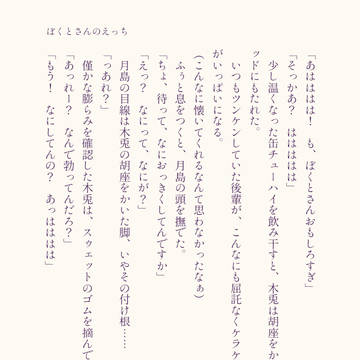 ぼくとさんのえっち
「あはははは！　も、ぼくとさんおもしろすぎ」
「そっかあ？　はははははは」
　少し温くなった缶チューハイを飲み干すと、木兎は胡座をか
ッドにもたれた。
　いつもツンケンしていた後輩が、こんなにも屈託なくケラケ
がいっぱいになる。
（こんなに懐いてくれるなんて思わなかったなぁ）
　ふぅと息をつくと、月島の頭を撫でた。
「ちょ、待って、なにおっきくしてんですか」
「えっ？　なにって、なにが？」
　月島の目線は木兎の胡座をかいた脚、いやその付け根……
「つあれ？」
　僅かな膨らみを確認した木兎は、スウェットのゴムを摘んで
「あっれー？　なんで勃ってんだろ？」
「もう！　なにしてんの？　あっはははは」